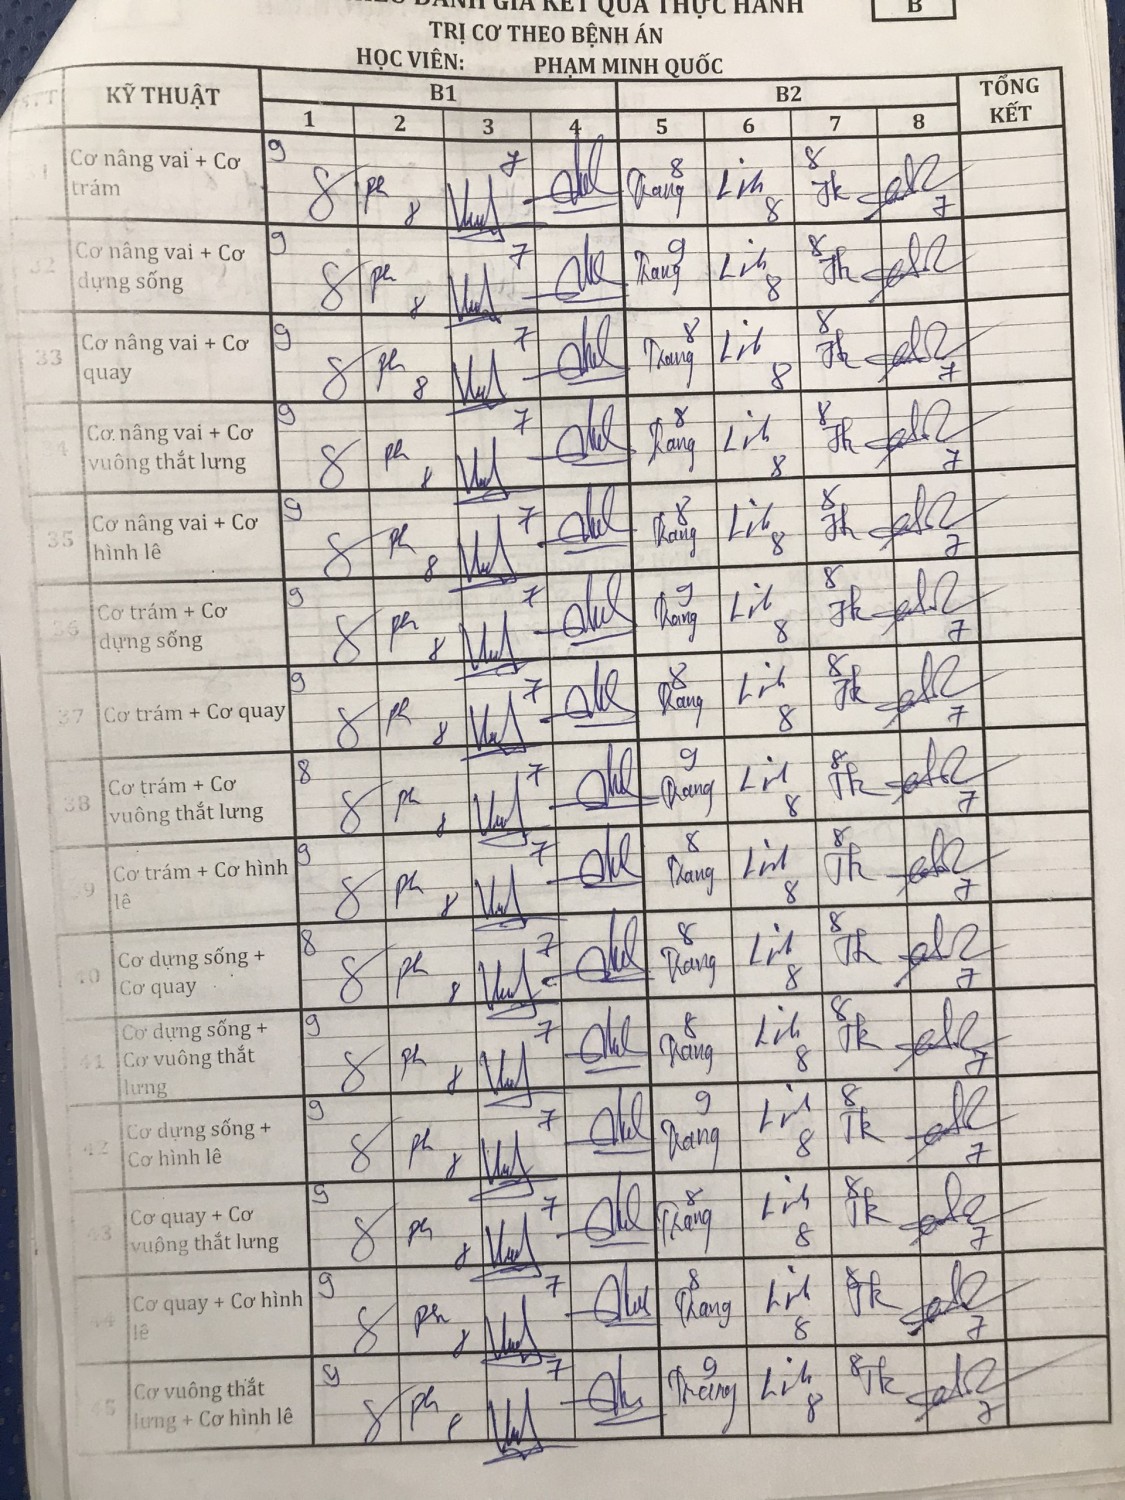 THEO ĐÁNH GIÁ KẾT QUẢ THỰC HÀNH
B
TRỊ CƠ THEO BỆNH ÁN
HỌC VIÊN: PHẠM MINH QUỐC
KỸ THUẬT B1 B2 TỔNG KẾT
1 2 3 4 5 6 7 8
Cơ nâng vai + Cơ trám 9 8 ph 8 7 Trang 8 Linh 8 8 Tk 7
32 Cơ nâng vai + Cơ dựng sống 9 8 ph 8 7 Trang 9 Linh 8 8 Tk
33 Cơ nâng vai + Cơ quay 9 8 ph 8 7 Trang 8 Linh 8 8 Tk 7
4 Cơ nâng vai + Cơ vuông thắt lưng 9 8 ph 8 7 Trang 8 Linh 8 8 Tk 7
35 Cơ nâng vai + Cơ hình lê 9 8 ph 8 7 Trang 8 Linh 8 8 Tk 7
36 Cơ trám + Cơ dựng sống 9 8 ph 8 7 Trang 9 Linh 8 8 Tk 7
37 Cơ trám + Cơ quay 9 8 ph 8 7 Trang 8 Linh 8 8 Tk 7
38 Cơ trám + Cơ vuông thắt lưng 8 8 ph 8 7 Trang 9 Linh 8 8 Tk 7
39 Cơ trám + Cơ hình lê 9 8 ph 8 7 Trang 8 Linh 8 8 Tk 7
40 Cơ dựng sống + Cơ quay 8 8 ph 8 7 Trang 8 Linh 8 8 Tk 7
41 Cơ dựng sống + Cơ vuông thắt lưng 9 8 ph 8 7 Trang 8 Linh 8 8 Tk 7
42 Cơ dựng sống + Cơ hình lê 9 8 ph 8 7 Trang 9 Linh 8 8 Tk 7
43 Cơ quay + Cơ vuông thắt lưng 9 8 ph 8 7 Trang 8 Linh 8 8 Tk 7
44 Cơ quay + Cơ hình lê 9 8 ph 8 7 Trang 8 Linh 8 8 Tk 7
45 Cơ vuông thắt lưng + Cơ hình lê 9 8 ph 8 7 Trang 9 Linh 8 8 Tk 7